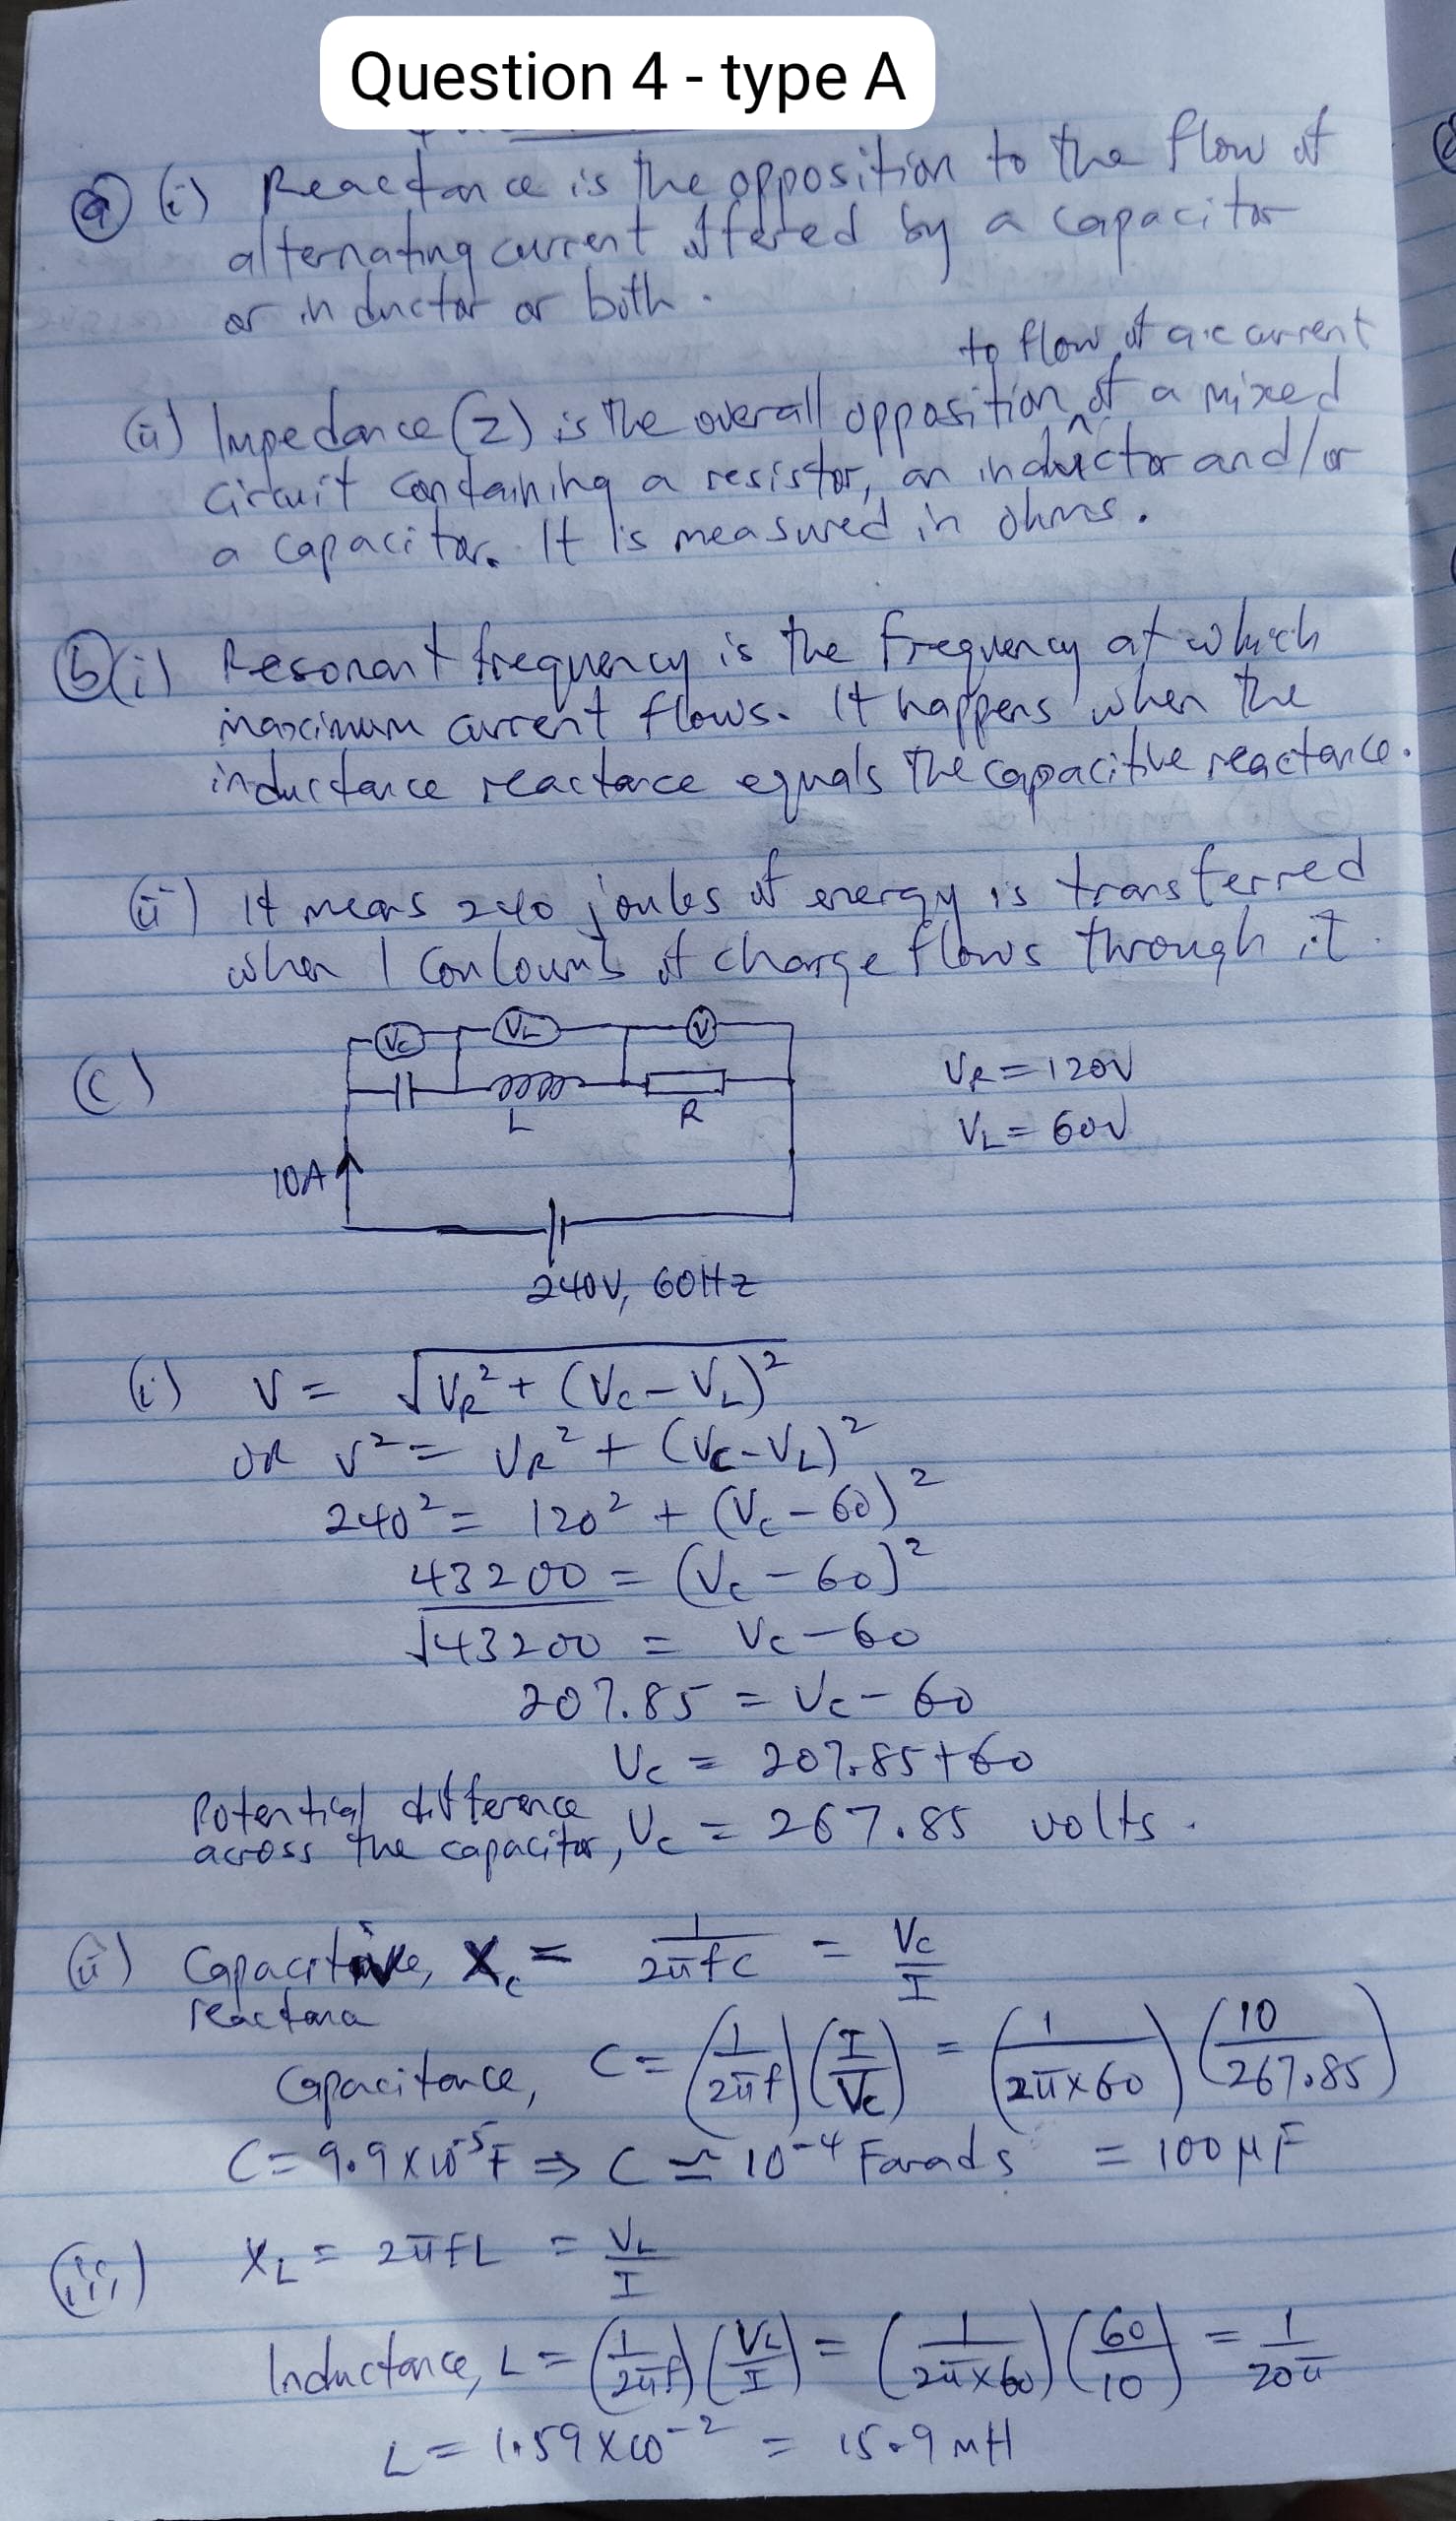 Question 4 - type A
(a) (i) Reactance is the opposition to the flow of
alternating current offered by a capacitor
or inductor or both.
to flow of a.c current
(ii) Impedance (Z) is the overall opposition ^ of a mixed
circuit containing a resistor, an inductor and/or
a capacitor. It is measured in ohms.
(b) (i) Resonant frequency is the frequency at which
maximum current flows. It happens when the
inductance reactance equals the capacitive reactance.
(ii) It means 240 joules of energy is transferred
when 1 Couloumb of charge flows through it.
(c)
Vc VL V
L R
VR = 120V
VL = 60V
10A
240V, 60Hz
(i) V = √(VR² + (Vc - VL)²)
OR V² = VR² + (Vc - VL)²
240² = 120² + (Vc - 60)²
43200 = (Vc - 60)²
√43200 = Vc - 60
207.85 = Vc - 60
Vc = 207.85 + 60
Potential difference
across the capacitor, Vc = 267.85 volts.
(ii) Capacitive, Xc = 1/2πfC = Vc/I
reactance
Capacitance, C = (1/2πf)(I/Vc) = (1/2π×60)(10/267.85)
C = 9.9 × 10⁻⁵F ⇒ C ≃ 10⁻⁴ Farads = 100μF
(iii) XL = 2πfL = VL/I
Inductance, L = (1/2πf)(VL/I) = (1/2π×60)(60/10) = 1/20π
L = 1.59 × 10⁻² = 15.9 mH